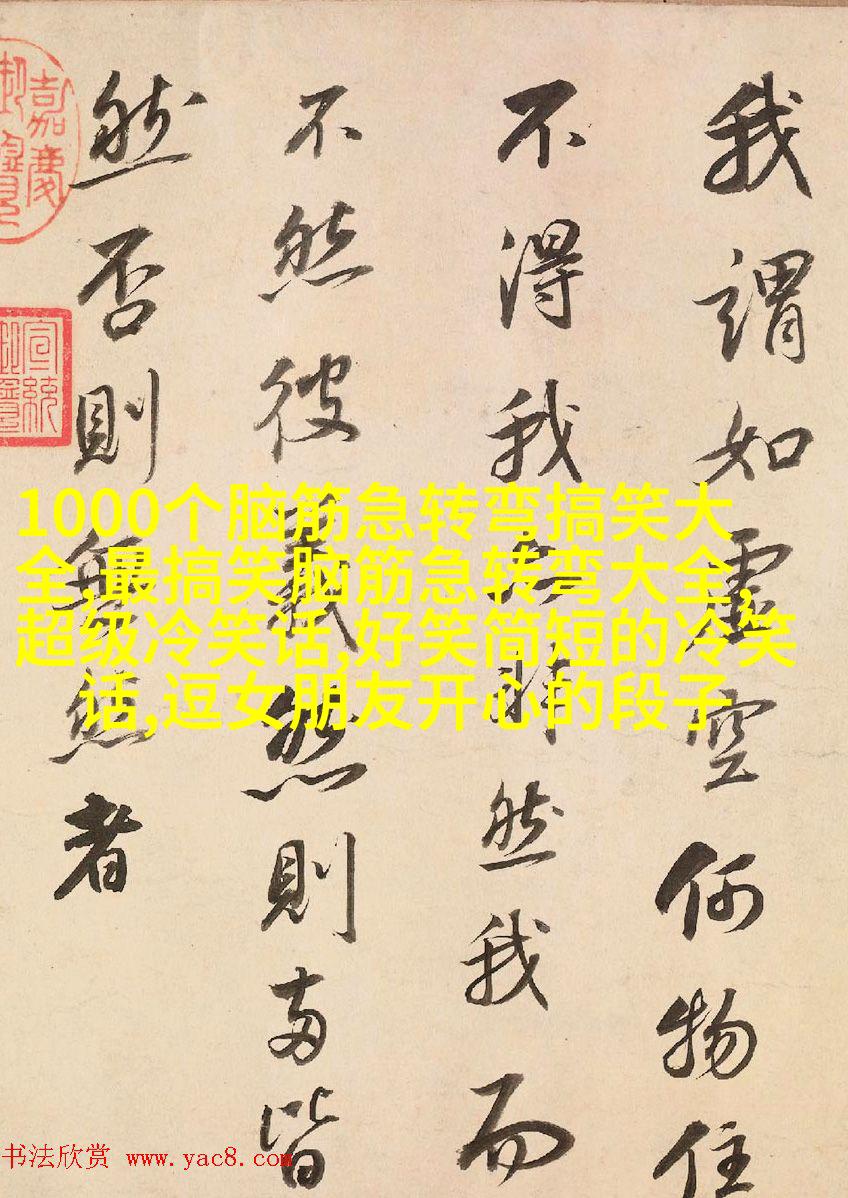 我謂如虛空何物住
不得我時然我而
不然彼義然則兩皆
然否則無然者
嘉慶
宣統
1000个脑筋急转弯搞笑大
全,最搞笑脑筋急转弯大全,
超级冷笑话,好笑简短的冷笑
话,逗女朋友开心的段子
书法欣赏 www.yac8.com